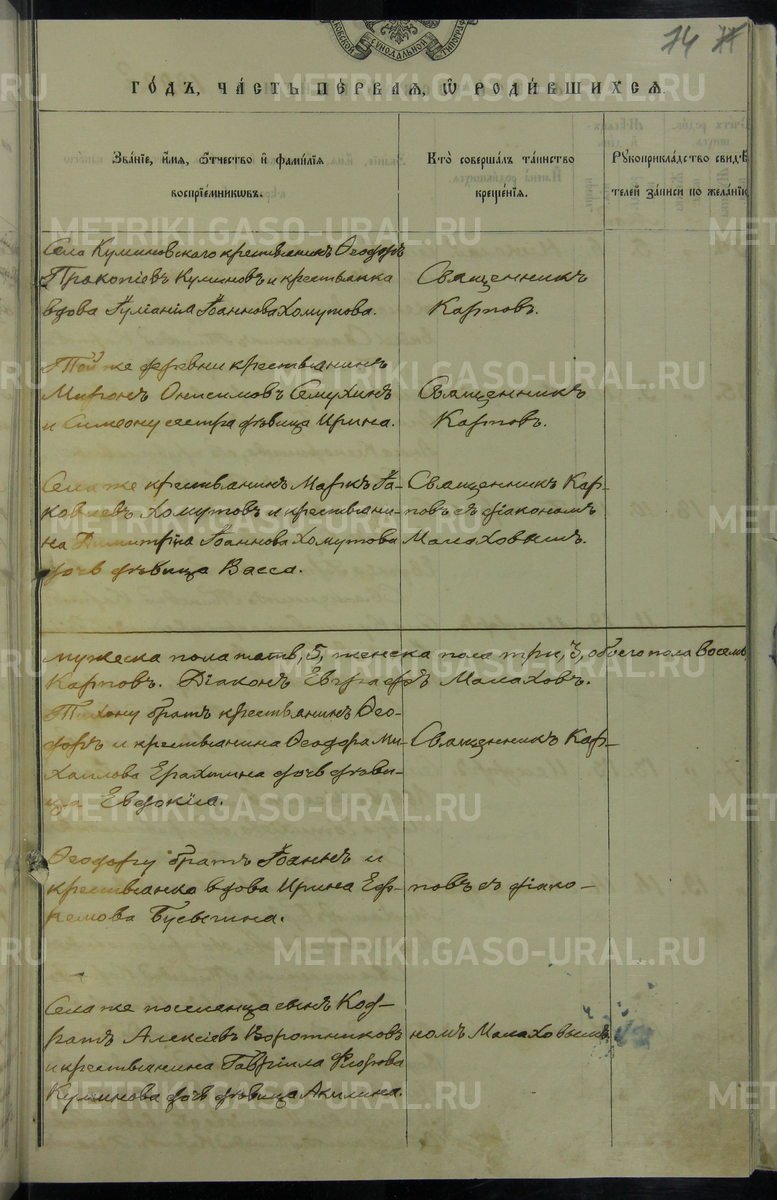 74
ГО́ДЪ, ЧА́СТЬ ПЕ́РВАЯ, Ѡ РОДИ́ВШИХСѦ.
Зва́нїе, и́мѧ, ѻ́тчество и҆ фами́лїѧ
воспрїе́мникѡвъ.
Кто̀ соверша́лъ та́инство
креще́нїѧ.
Рꙋкоприкла́дство свидѣ́
телей за́писи по жела́нїю
Села Кулиновскаго крестьянинъ Ѳеодоръ
Прокопіевъ Кулиновъ и крестьянка
вдова Іуліанія Іоаннова Хомутова.
Священникъ
Карповъ.
Той же деревни крестьянинъ
Миронъ Онисимовъ Семухинъ
и Симеону сестра дѣвица Ирина.
Священникъ
Карповъ.
Села же крестьянинъ Маркъ Іа-
ковлевъ Хомутовъ и крестьяни-
на Димитрія Іоаннова Хомутова
дочь дѣвица Васса.
Священникъ Кар-
повъ съ діакономъ
Малаховымъ.
мужеска пола пять, 5, женска пола три, 3, обоего пола восемь
Карповъ. Діаконъ Евграфъ Малаховъ.
Тихону братъ крестьянинъ Ѳео-
доръ и крестьянина Ѳеодора Ми-
хаилова Ерахтина дочь дѣви-
ца Евдокія.
Священникъ Кар-
Ѳеодору братъ Іоаннъ и
крестьянка вдова Ирина Еф-
ремова Бусыгина.
повъ съ діако-
Села же поселенца сынъ Код-
ратъ Алексіевъ Воротниковъ
и крестьянина Гавріила Ѳеорова
Кулинова дочь дѣвица Акилина.
номъ Малаховымъ
METRIKI.GASO-URAL.RU